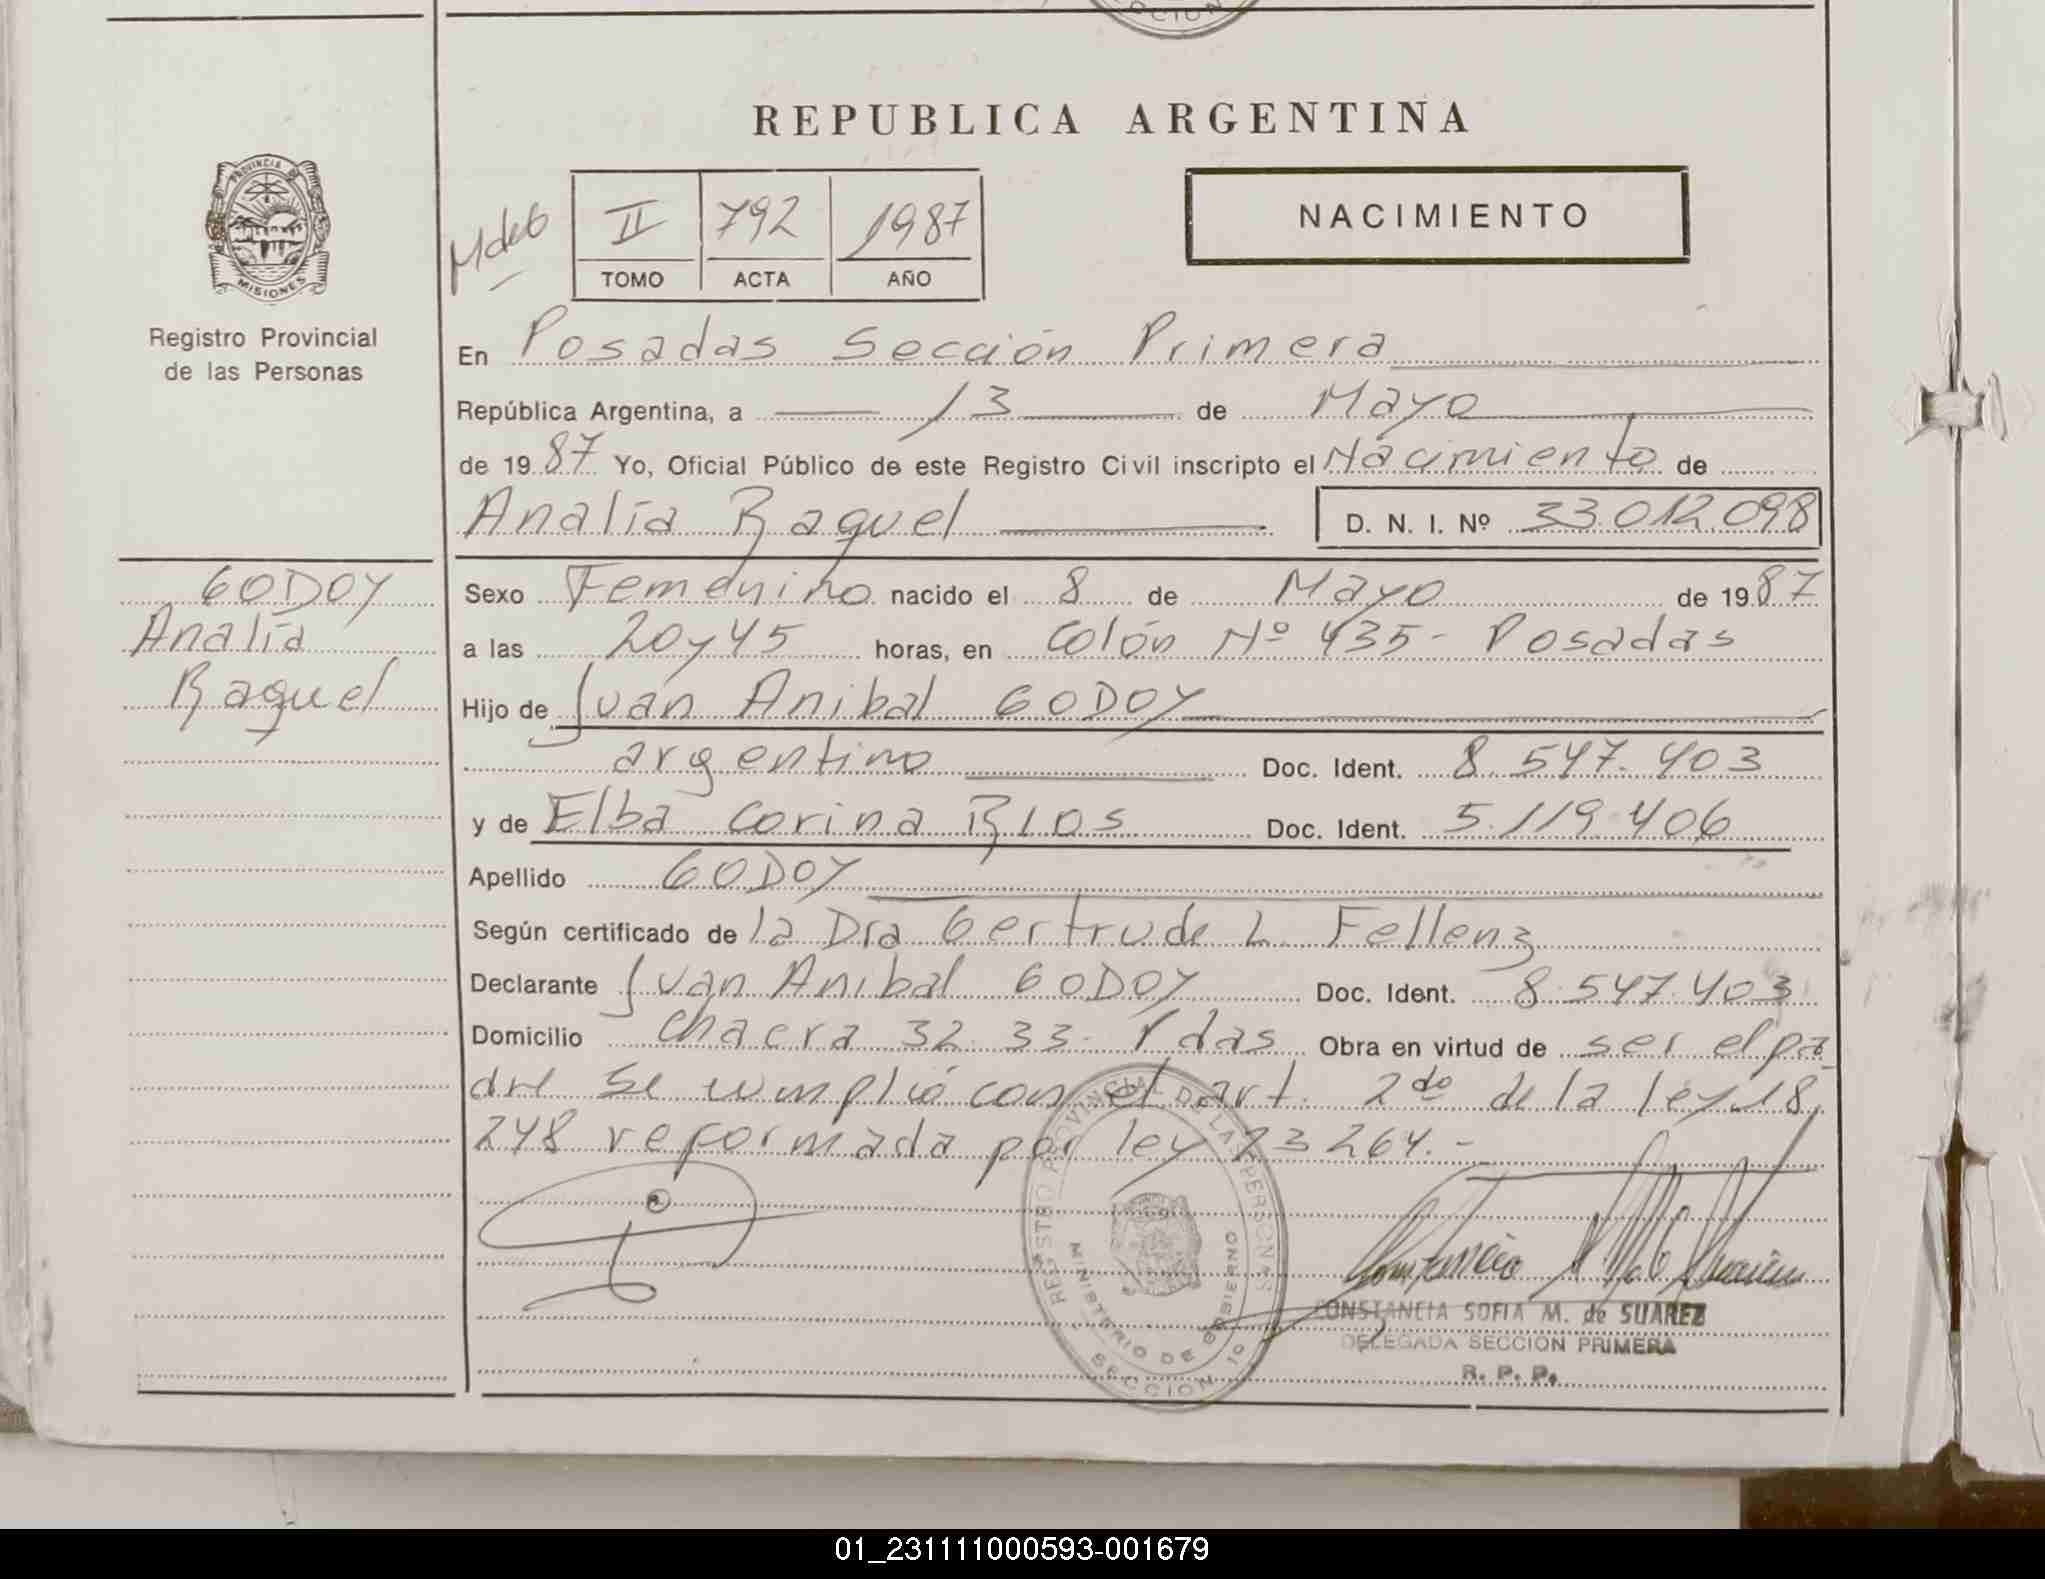 REPUBLICA ARGENTINA
PROVINCIA
MISIONES
Registro Provincial
de las Personas
II 792 1987
TOMO ACTA AÑO
NACIMIENTO
En Posadas Sección Primera
República Argentina, a 13 de Mayo
de 1987 Yo, Oficial Público de este Registro Civil inscripto el Nacimiento de
Analía Raquel D. N. I. Nº 33.012.098
GODOY
Analía
Raquel
Sexo Femenino nacido el 8 de Mayo de 1987
a las 20 y 45 horas, en Colón Nº 435 - Posadas
Hijo de Juan Anibal GODOY
argentino Doc. Ident. 8.547.403
y de Elba Corina RIOS Doc. Ident. 5.119.406
Apellido GODOY
Según certificado de la Dra Gertrude L. Fellenz
Declarante Juan Anibal GODOY Doc. Ident. 8.547.403
Domicilio Chacra 32-33- Pdas Obra en virtud de ser el pa
dre Se cumplió con el art. 2do de la ley 18.
248 reformada por ley 23264.-
REGISTRO PROVINCIAL DE LAS PERSONAS
MINISTERIO DE GOBIERNO
SECCION 1º
CONSTANCIA SOFIA M. de SUAREZ
DELEGADA SECCION PRIMERA
R. P. P.
01_231111000593-001679